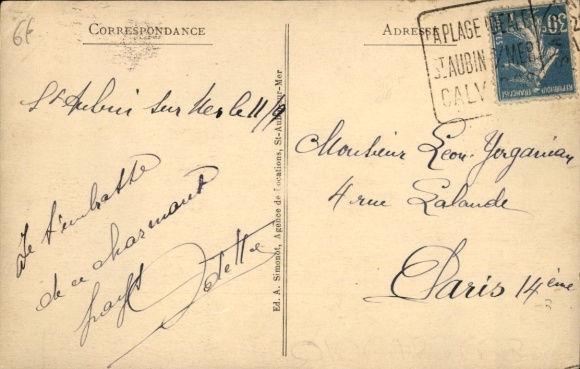 6f
CORRESPONDANCE
ADRESSE
LA PLAGE IDEALE
ST AUBIN S/ MER
CALV
30
REPUBLIQUE FRANCAISE
St Aubin sur Mer le 11/9
Je t'embrasse
de ce charmant
pays
Odette
Ed. A. Simonot, Agence de Locations, St-Aubin-sur-Mer
Monsieur Léon
4 rue Lalande
Paris 14ème